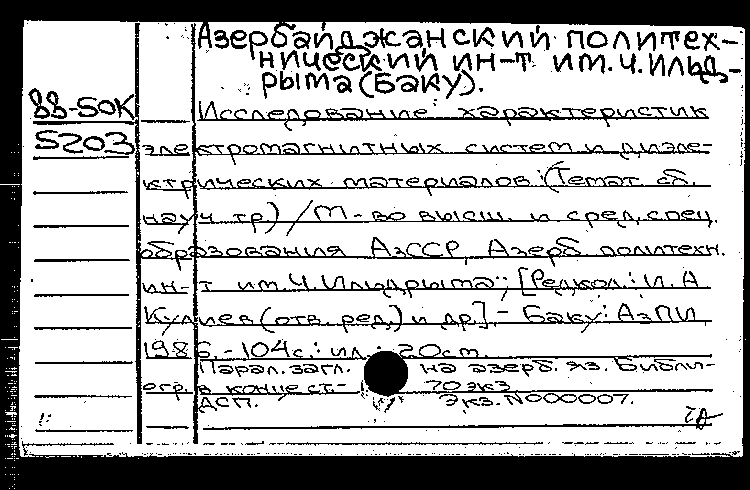 Азербайджанский политех-
нический ин-т им. Ч. Ильд-
рыма (Баку).
88-50К
Исследование характеристик
5203
электромагнитных систем и диэле-
ктрических материалов: (Темат. сб.
науч. тр.) / М-во высш. и сред. спец.
образования АзССР, Азерб. политехн.
ин-т им. Ч. Ильдрыма; [Редкол.: И. А
Кулиев (отв. ред.) и др.]. - Баку: АзПИ,
1986. - 104 с.: ил.; 20 см.
Парал. загл. на азерб. яз. Библи-
огр. в конце ст.- 70 экз.
ДСП. Экз. N000007.